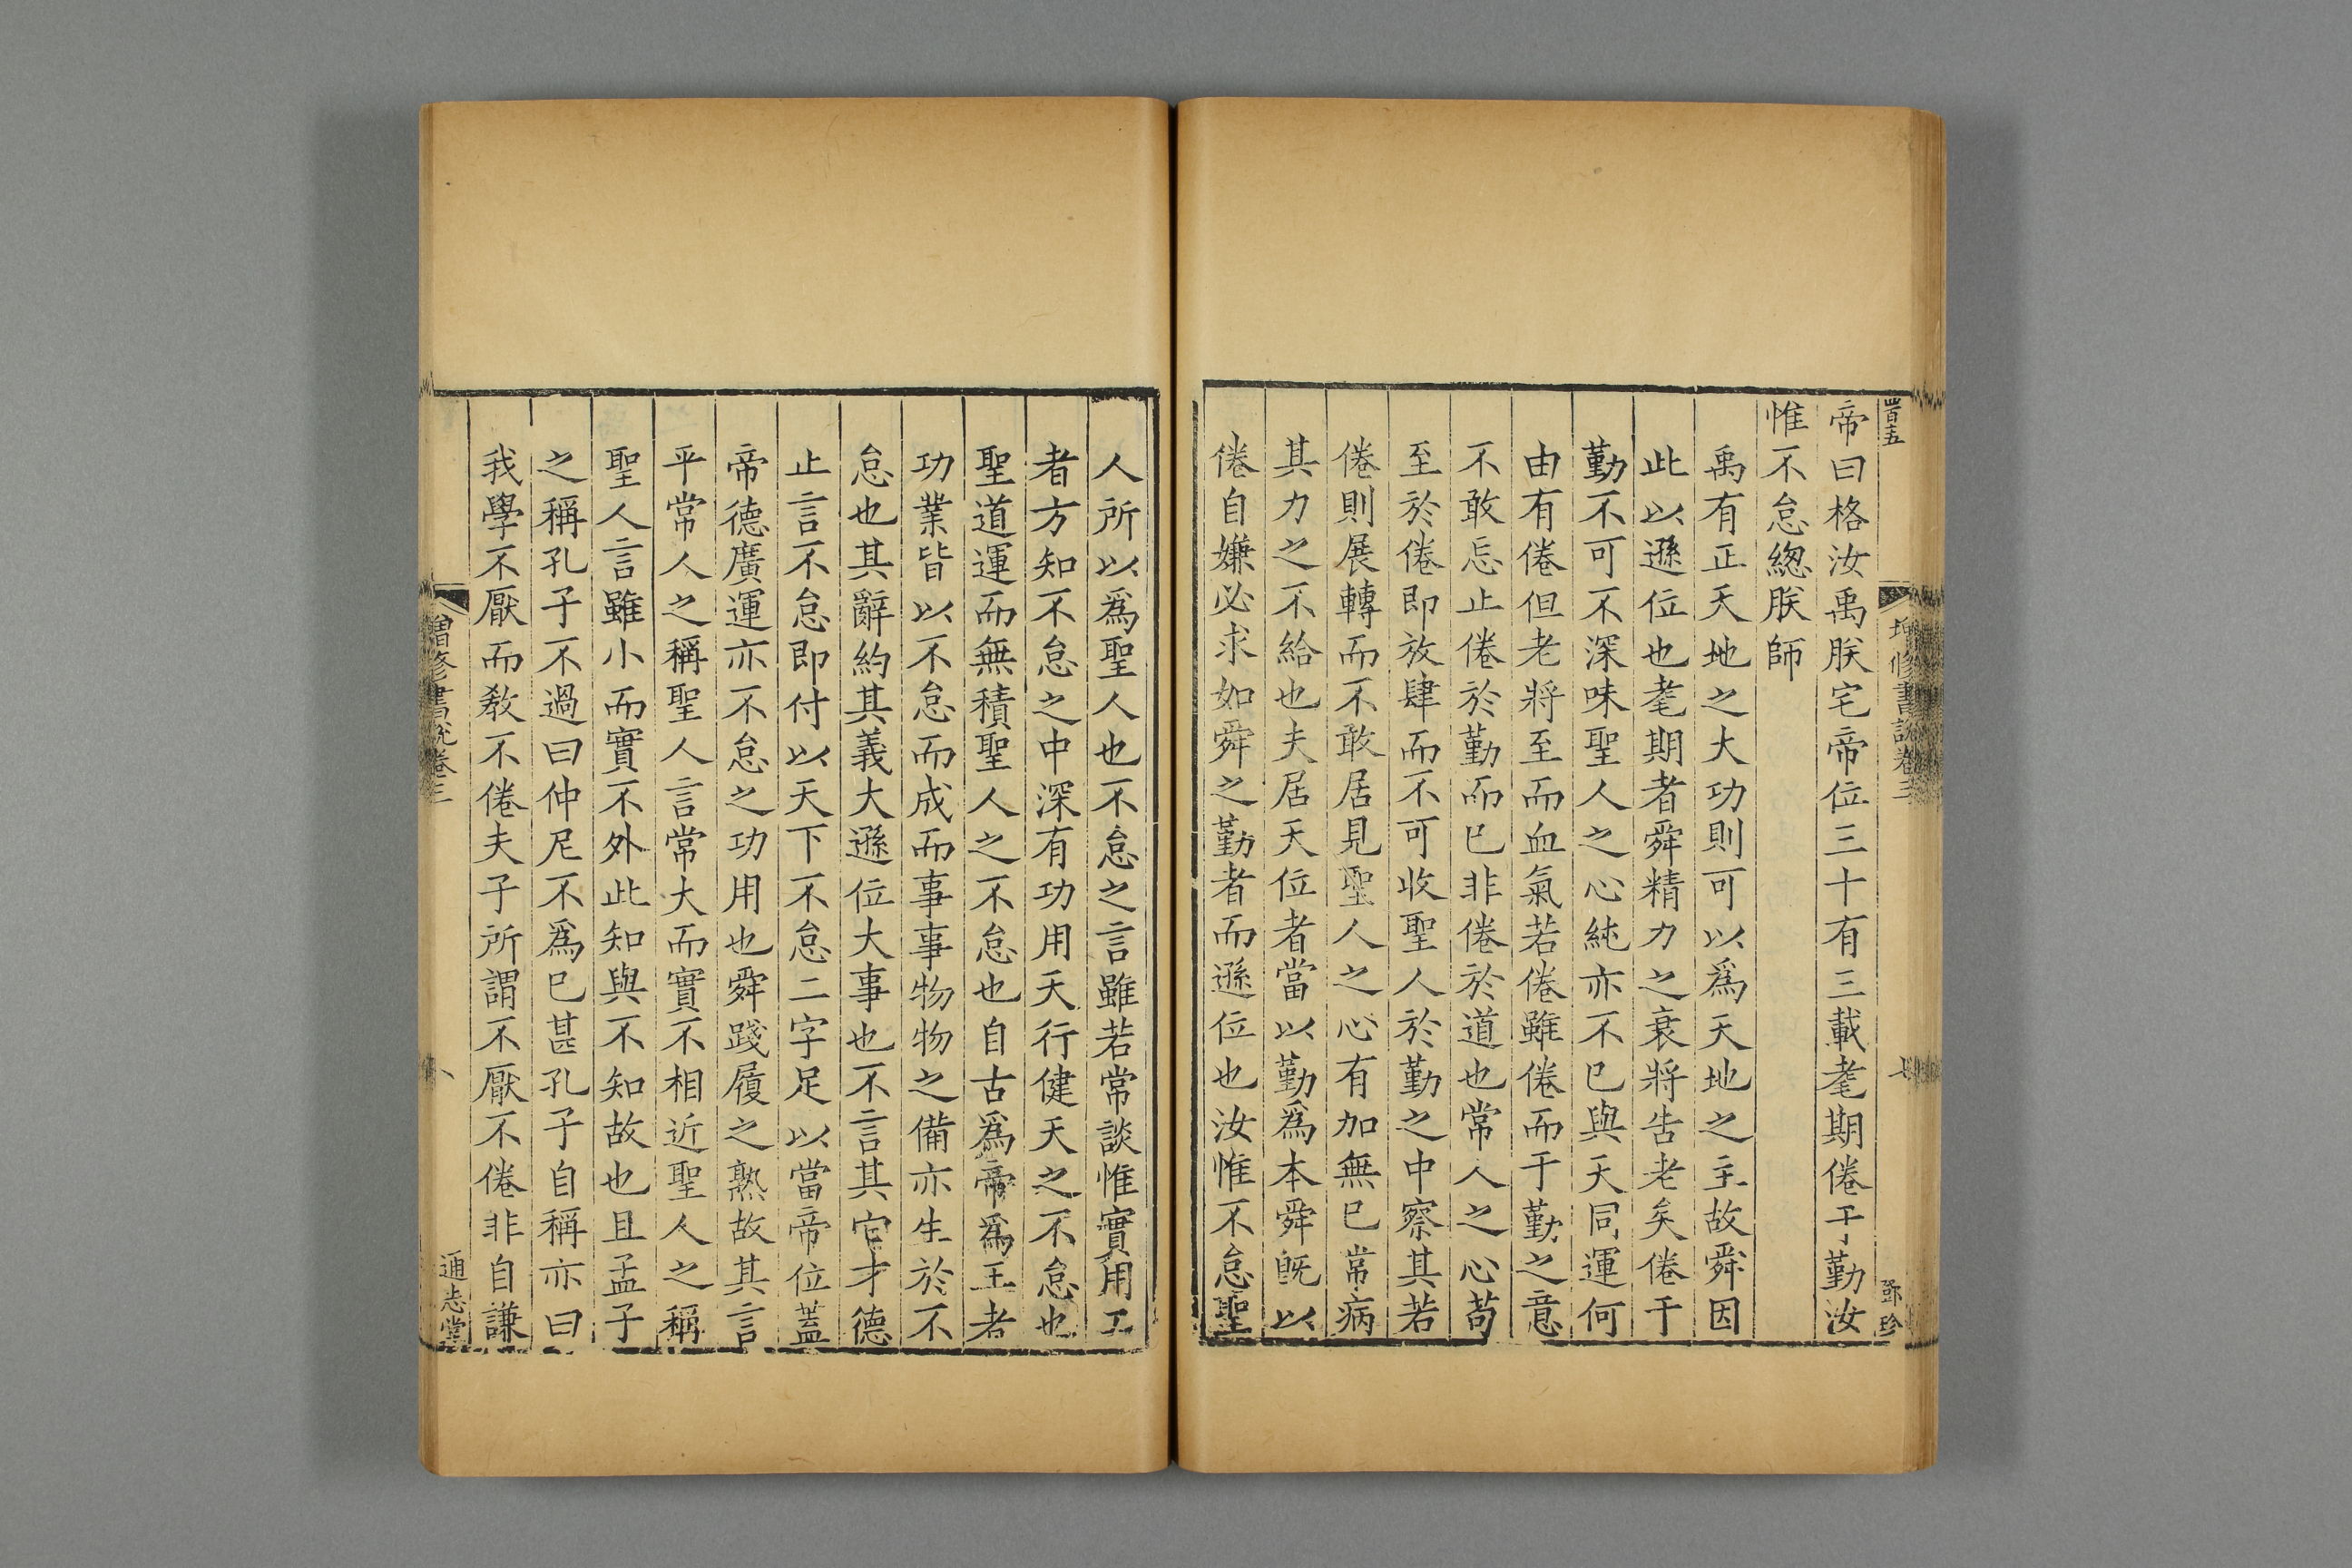 帝曰格汝禹朕宅帝位三十有三載耄期倦于勤汝
惟不怠緫朕師
禹有正天地之大功則可以爲天地之主故舜因
此以遜位也耄期者舜精力之衰將告老矣倦于
勤不可不深味聖人之心純亦不已與天同運何
由有倦但老將至而血氣若倦雖倦而于勤之意
不敢忘止倦於勤而已非倦於道也常人之心苟
至於倦即放肆而不可收聖人於勤之中察其若
倦則展轉而不敢居見聖人之心有加無已常病
其力之不給也夫居天位者當以勤爲本舜旣以
倦自嫌必求如舜之勤者而遜位也汝惟不怠聖
人所以爲聖人也不怠之言雖若常談惟實用工
者方知不怠之中深有功用天行健天之不怠也
聖道運而無積聖人之不怠也自古爲帝爲王者
功業皆以不怠而成而事事物物之備亦生於不
怠也其辭約其義大遜位大事也不言其它才德
止言不怠即付以天下不怠二字足以當帝位蓋
帝德廣運亦不怠之功用也舜踐履之熟故其言
平常人之稱聖人言常大而實不相近聖人之稱
聖人言雖小而實不外此知與不知故也且孟子
之稱孔子不過曰仲尼不爲已甚孔子自稱亦曰
我學不厭而敎不倦夫子所謂不厭不倦非自謙
增修書説卷三
七
增修書説卷三
八
通志堂